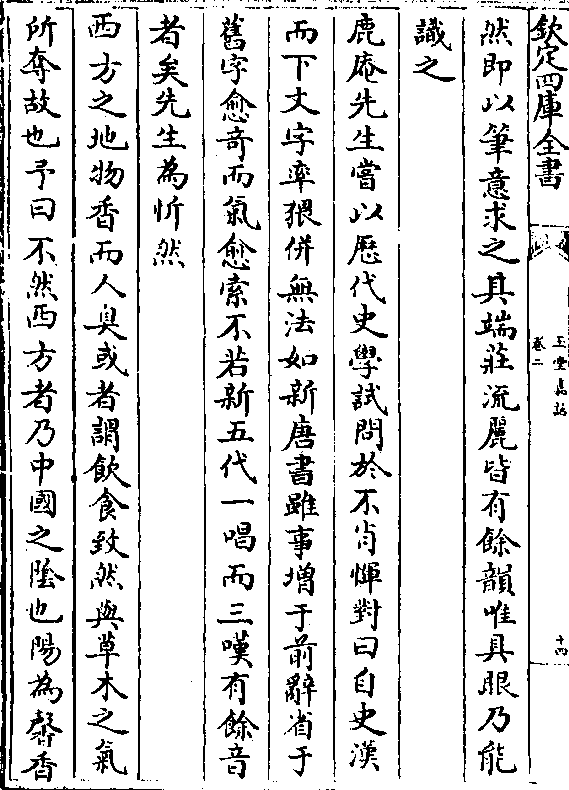 欽定四庫全書
玉堂嘉話
卷二
十四
然即以筆意求之具端莊流麗皆有餘韻唯具眼乃能
識之
鹿庵先生嘗以厯代史學試問於不肖惲對曰自史漢
而下文字率猥併無法如新唐書雖事增于前辭省于
舊字愈竒而氣愈索不若新五代一唱而三嘆有餘音
者矣先生為忻然
西方之地物香而人臭或者謂飲食致然與草木之氣
所奪故也予曰不然西方者乃中國之陰也陽為馨香